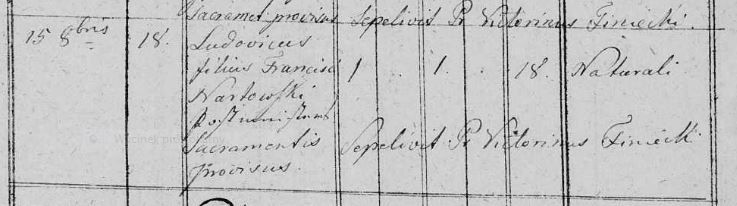 Sacramen provisus Sepelivit Pr Victorinus Finiecki.
15 8bris 18. Ludovicus
filius Francisci 1 . 1. . 18. Naturali
Nartowski
Sacramentis Sepelivit Pr Victorinus Finiecki
Provisus.